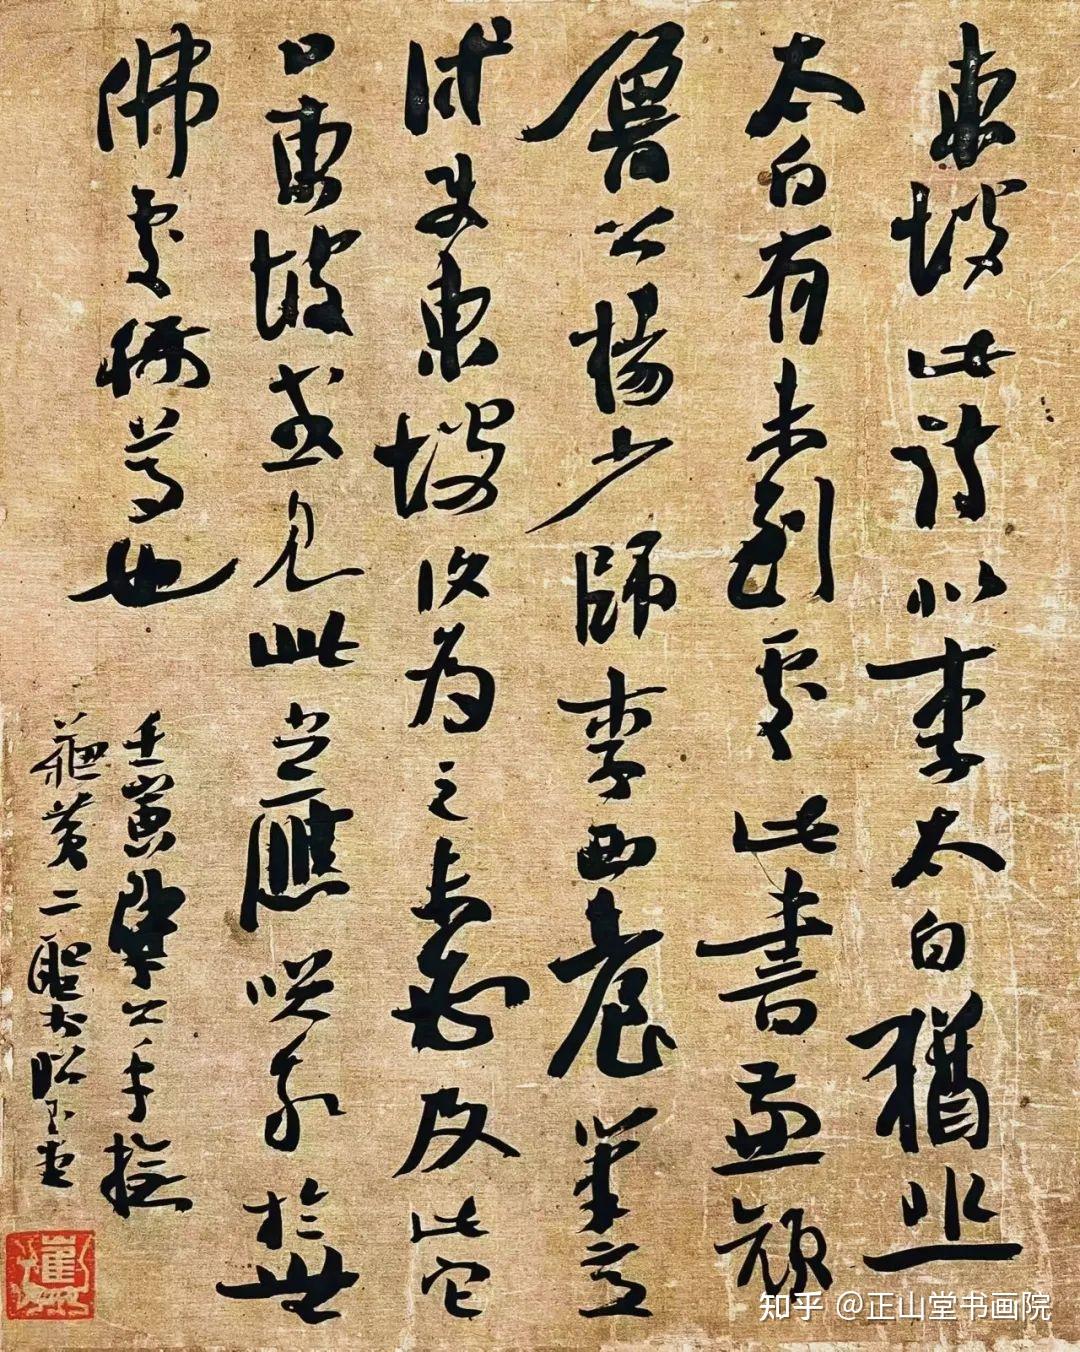 東坡此詩似李太白猶恐
太白有未到處此書兼顏
魯公楊少師李西臺筆意
試使東坡復為之未必及此它
日東坡或見此書應笑我於無
佛處稱尊也
壬寅 手
蘇黃二聖
知乎 @正山堂书画院